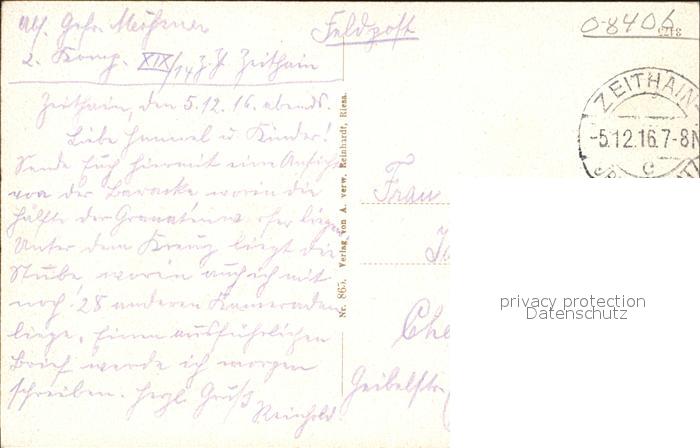 Abs. Gefr. Meißner
2. Komp. XIX/14 z. Zt. Zeithain
Feldpost
0-8406
ZEITHAIN
-5.12.16.7-8N
c
Zeithain, den 5.12.16. abends.
Liebe Hammel u. Kinder!
Sende Euch hiermit eine Ansicht
von der Baracke worin die
Hälfte der Grenadiere hier liegen.
Unter dem Kreuz liegt die
Stube, worin auch ich mit
noch 28 anderen Kameraden
liege. Einen ausführlichen
Brief werde ich morgen
schreiben. Herzl. Gruß
Reinhold.
Nr. 865. Verlag von A. verw. Reinhardt, Riesa.
Frau
Che
Geibelstr.
privacy protection
Datenschutz